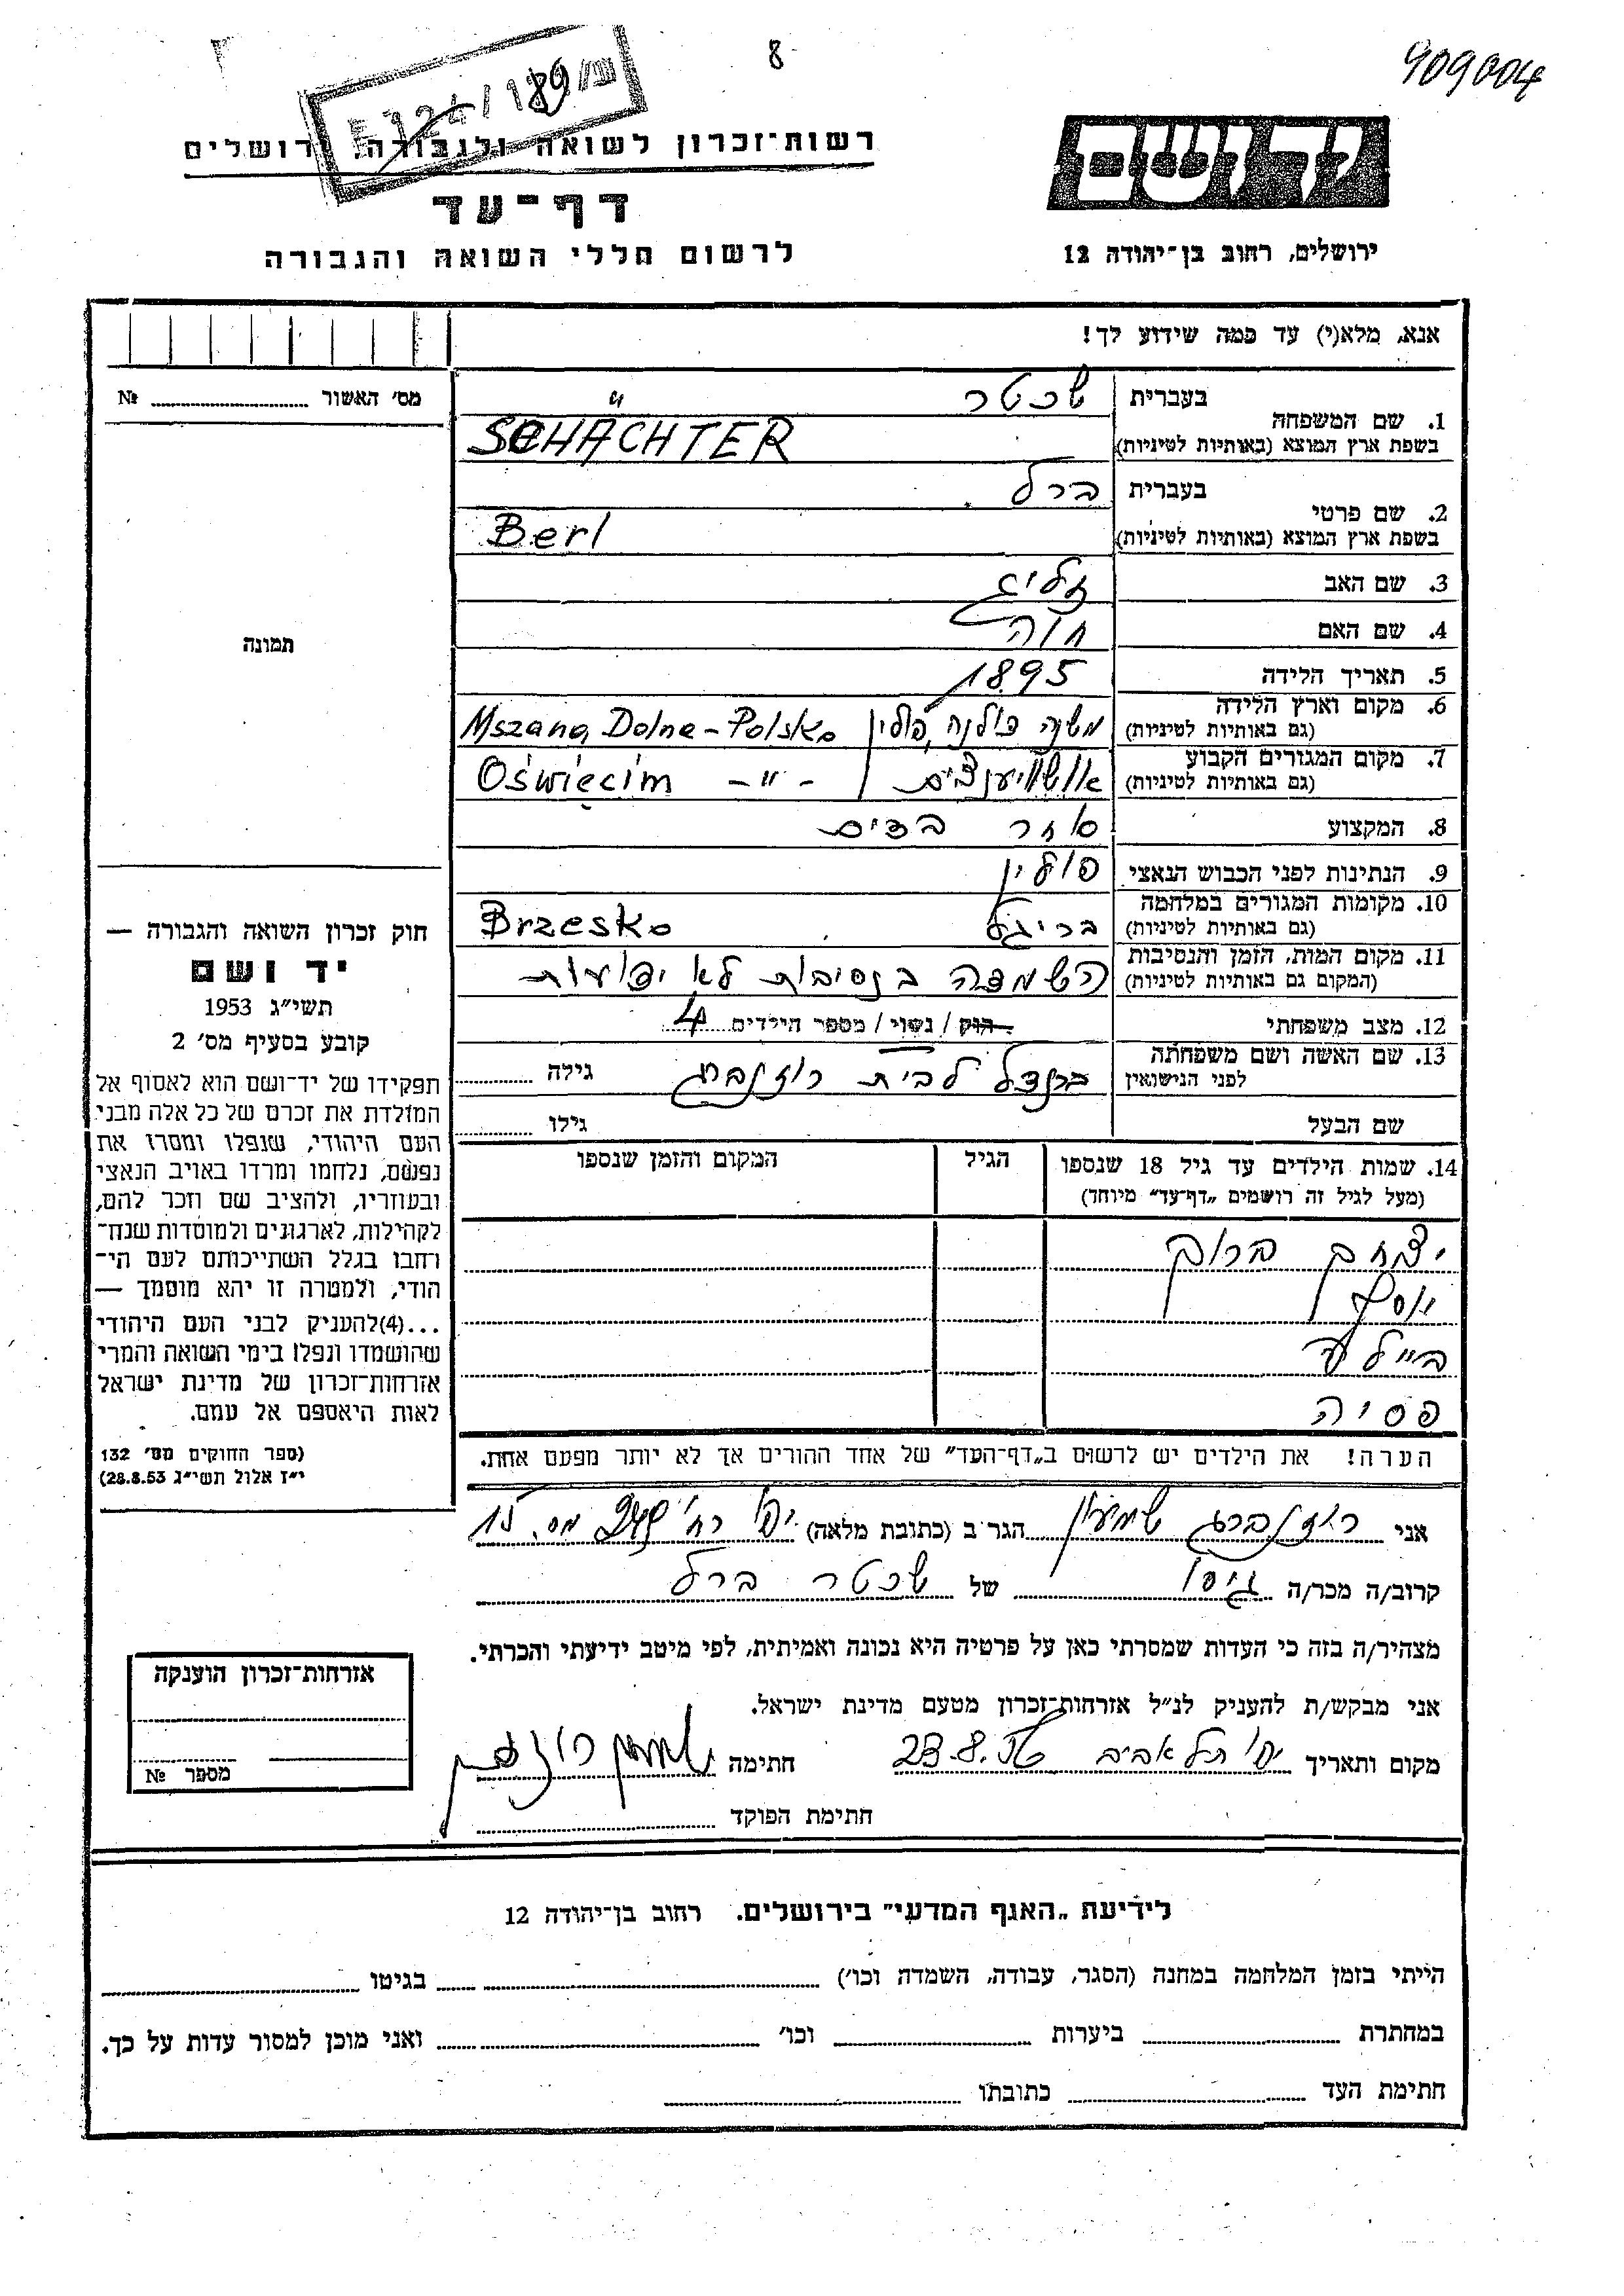 8
909004
רשות־זכרון לשואה ולגבורה, ירושלים
דף־עד
לרשום חללי השואה והגבורה
יד ושם
ירושלים, רחוב בן־יהודה 12
אנא, מלא(י) עד כמה שידוע לך!
מס' האשור № 
1. שם המשפחה בעברית שכטר
בשפת ארץ המוצא (באותיות לטיניות) SCHACHTER
2. שם פרטי בעברית ברל
בשפת ארץ המוצא (באותיות לטיניות) Berl
3. שם האב זליג
4. שם האם חוה
5. תאריך הלידה 1895
6. מקום וארץ הלידה (גם באותיות לטיניות) משנה דולנה, פולין Mszana Dolna - Polska
7. מקום המגורים הקבוע (גם באותיות לטיניות) אושוויענצים Oświęcim - " -
8. המקצוע סוחר בדים
9. הנתינות לפני הכבוש הנאצי פולין
10. מקומות המגורים במלחמה (גם באותיות לטיניות) בריגל Brzesko
11. מקום המות, הזמן והנסיבות (המקום גם באותיות לטיניות) השמדה בנסיבות לא ידועות
12. מצב משפחתי רווק / נשוי / מספר הילדים 4
13. שם האשה ושם משפחתה לפני הנישואין ברנדל לבית רוזנברג גילה
שם הבעל גילו
14. שמות הילדים עד גיל 18 שנספו הגיל המקום והזמן שנספו
(מעל לגיל זה רושמים „דף־עד” מיוחד)
יצחק ברוך
יוסף
ביילע
פסיה
הערה! את הילדים יש לרשום ב„דף־העד” של אחד ההורים אך לא יותר מפעם אחת.
תמונה
חוק זכרון השואה והגבורה —
יד ושם
תשי"ג 1953
קובע בסעיף מס' 2
תפקידו של יד־ושם הוא לאסוף אל
המולדת את זכרם של כל אלה מבני
העם היהודי, שנפלו ומסרו את
נפשם, נלחמו ומרדו באויב הנאצי
ובעוזריו, ולהציב שם וזכר להם,
לקהילות, לארגונים ולמוסדות שנח־
רבו בגלל השתייכותם לעם הי־
הודי, ולמטרה זו יהא מוסמך —
...(4) להעניק לבני העם היהודי
שהושמדו ונפלו בימי השואה והמרי
אזרחות־זכרון של מדינת ישראל
לאות היאספם אל עמם.
(ספר החוקים מס' 132
י"ז אלול תשי"ג 28.8.53)
אני רוזנברג שמעון הגר ב (כתובת מלאה) יפו רח' מס. 15
קרוב/ה מכר/ה גיסו של שכטר ברל
מצהיר/ה בזה כי העדות שמסרתי כאן על פרטיה היא נכונה ואמיתית, לפי מיטב ידיעתי והכרתי.
אני מבקש/ת להעניק לנ"ל אזרחות־זכרון מטעם מדינת ישראל.
מקום ותאריך יפו תל אביב 23.8.56 חתימה
חתימת הפוקד
אזרחות־זכרון הוענקה
מספר №
לידיעת „האגף המדעי” בירושלים. רחוב בן־יהודה 12
הייתי בזמן המלחמה במחנה (הסגר, עבודה, השמדה וכו') בגיטו
במחתרת ביערות וכו' ואני מוכן למסור עדות על כך.
חתימת העד כתובתו